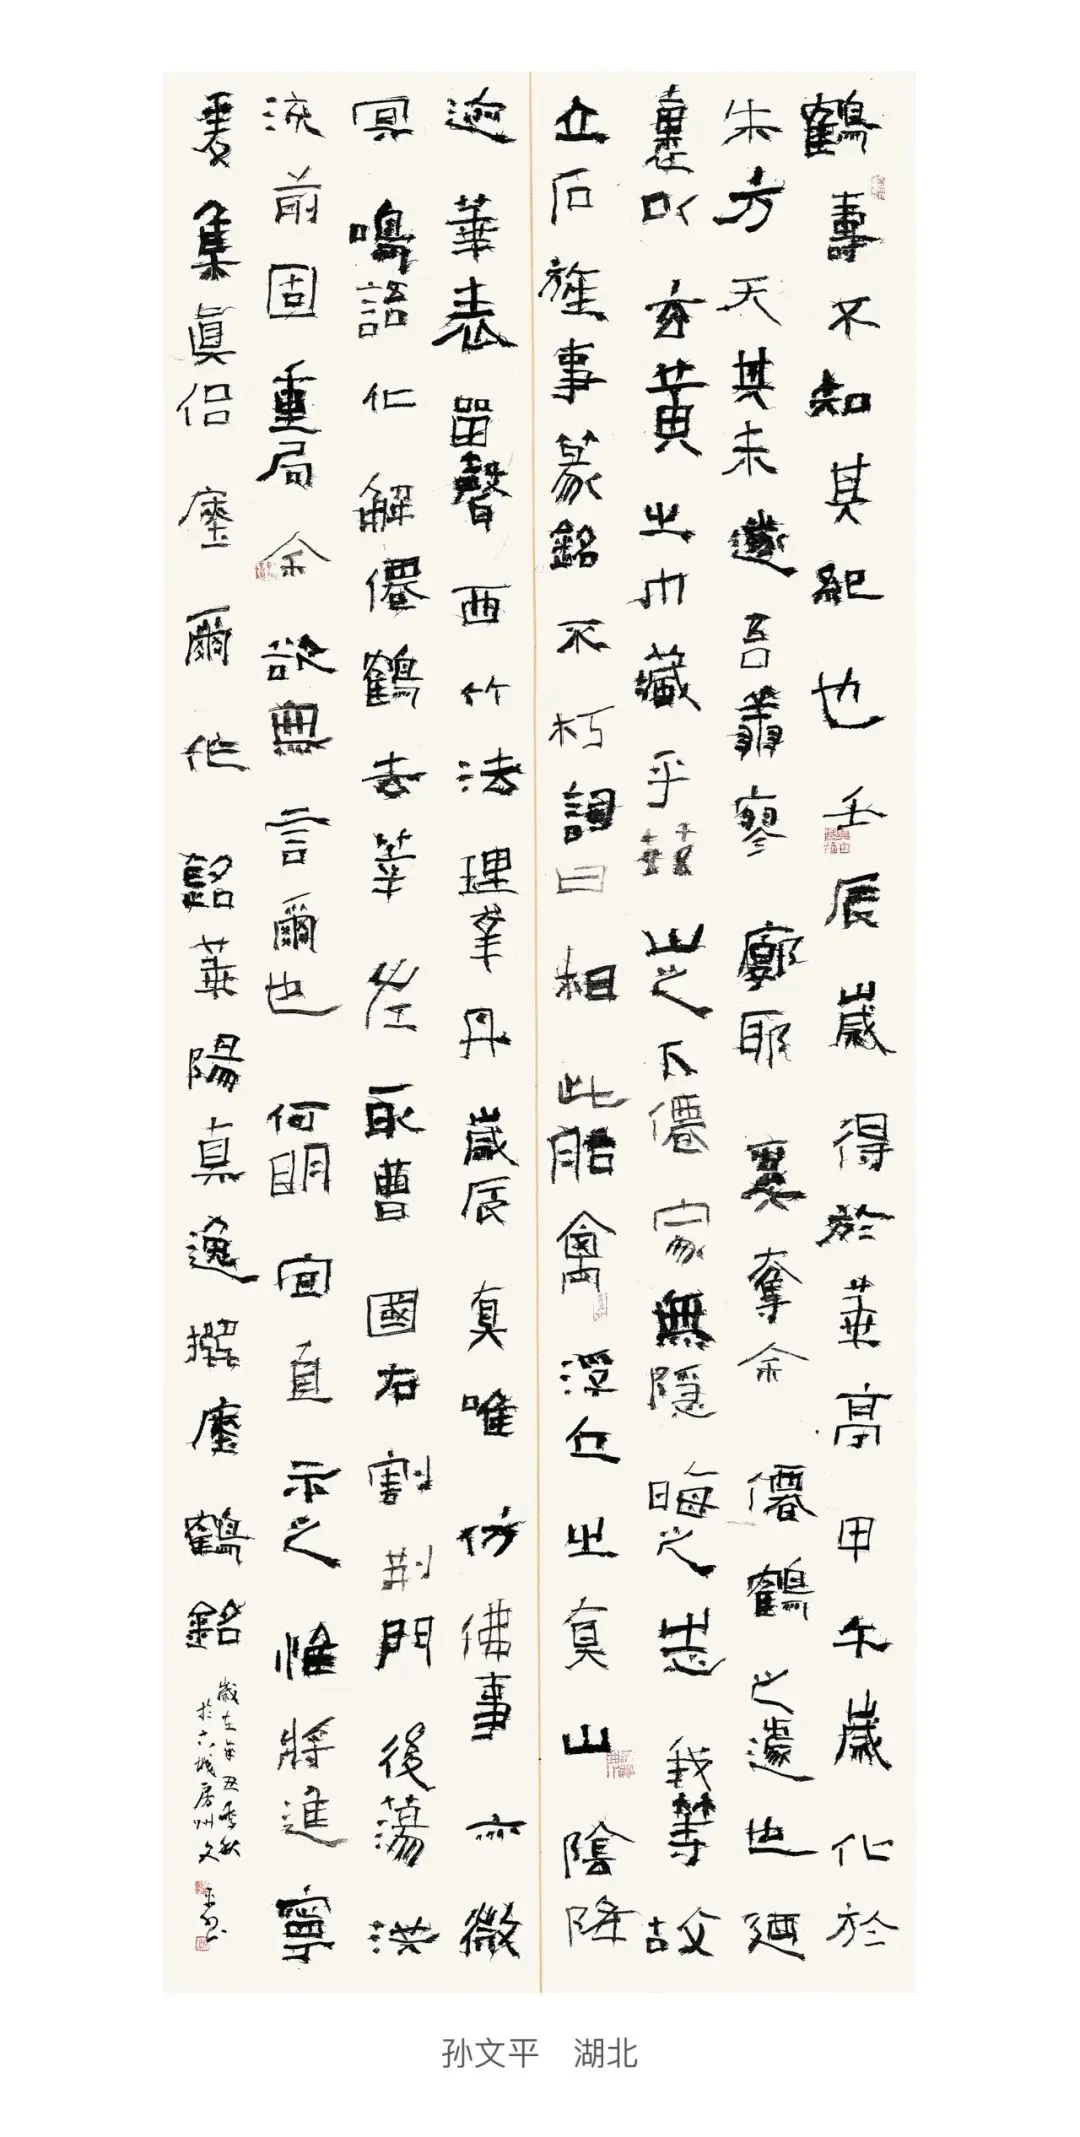 鶴壽不知其紀也壬辰歲得於華亭甲午歲化於
朱方天其未遂吾翔寥廓耶奚奪余僊鶴之遽也廼
裹以玄黃之巾藏乎茲山之下僊家無隱晦之志我等故
立石旌事篆銘不朽詞曰相此胎禽浮丘之真山陰降
迹華表留聲西竹法理幸丹歲辰真唯仿佛事亦微
冥鳴語化解僊鶴去莘左取曹國右割荆門後蕩洪
流前固重扃余欲無言爾也何明宜直示之惟將進寧
丹集真侶瘞爾作銘華陽真逸撰瘞鶴銘
歲在辛丑季秋
於古城房州文
平書
孙文平 湖北